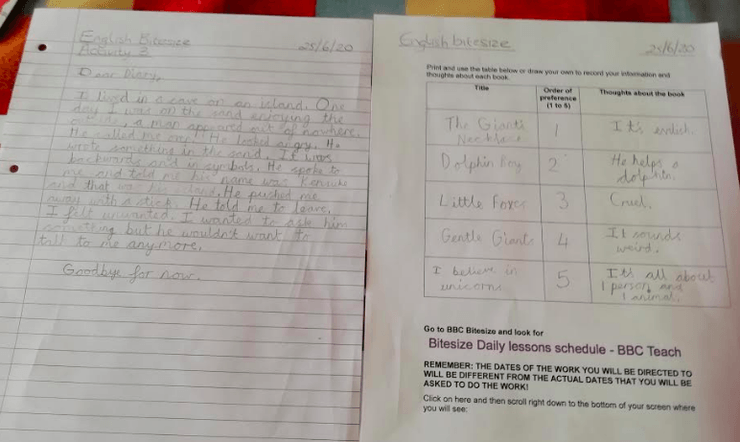 English Bitesize
Activity 2
25/6/20
Dear Diary,
I lived in a cave on an island. One
day I was on the sand enjoying the
outside, a man appeared out of nowhere.
He called me He looked angry. He
wrote something in the sand. It was
backwards and in symbols. He spoke to
me and told me his name was Kensuke
and that was his island. He pushed me
away with a stick. He told me to leave.
I felt unwanted. I wanted to ask him
something but he wouldn't want to
talk to me anymore.
Goodbye for now.
English bitesize
25/6/20
Print and use the table below or draw your own to record your information and
thoughts about each book.
Title
Order of
preference
(1 to 5)
Thoughts about the book
The Giant's
Necklace
1
It's
Dolphin Boy
2
He helps a
dolphin.
Little Foxes
3
Cruel.
Gentle Giant
4
It sounds
weird.
I believe in
unicorns
5
It's all about
1 person and
1 animal.
Go to BBC Bitesize and look for
Bitesize Daily lessons schedule - BBC Teach
REMEMBER: THE DATES OF THE WORK YOU WILL BE DIRECTED TO
WILL BE DIFFERENT FROM THE ACTUAL DATES THAT YOU WILL BE
ASKED TO DO THE WORK!
Click on here and then scroll right down to the bottom of your screen where
you will see: